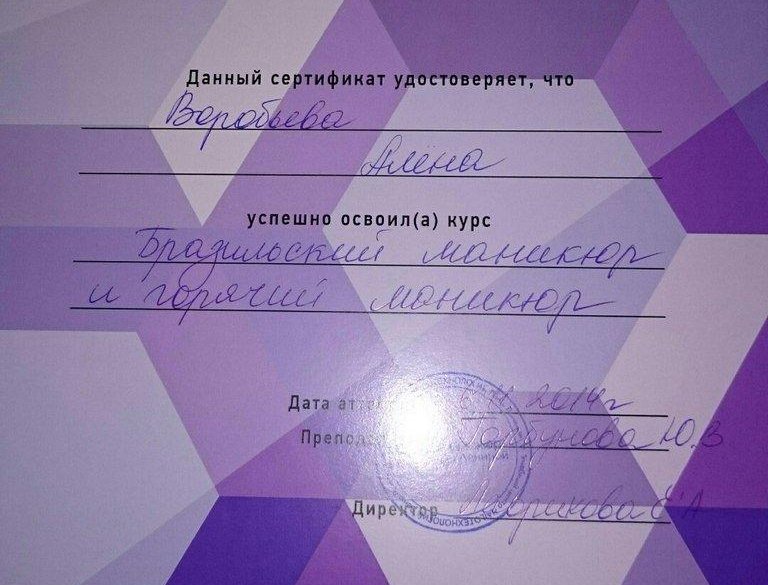 Данный сертификат удостоверяет, что
Воробьева
Алёна
успешно освоил(а) курс
Бразильский маникюр
и горячий маникюр
Дата
11 2014г
Горбунова Ю.В
Директор